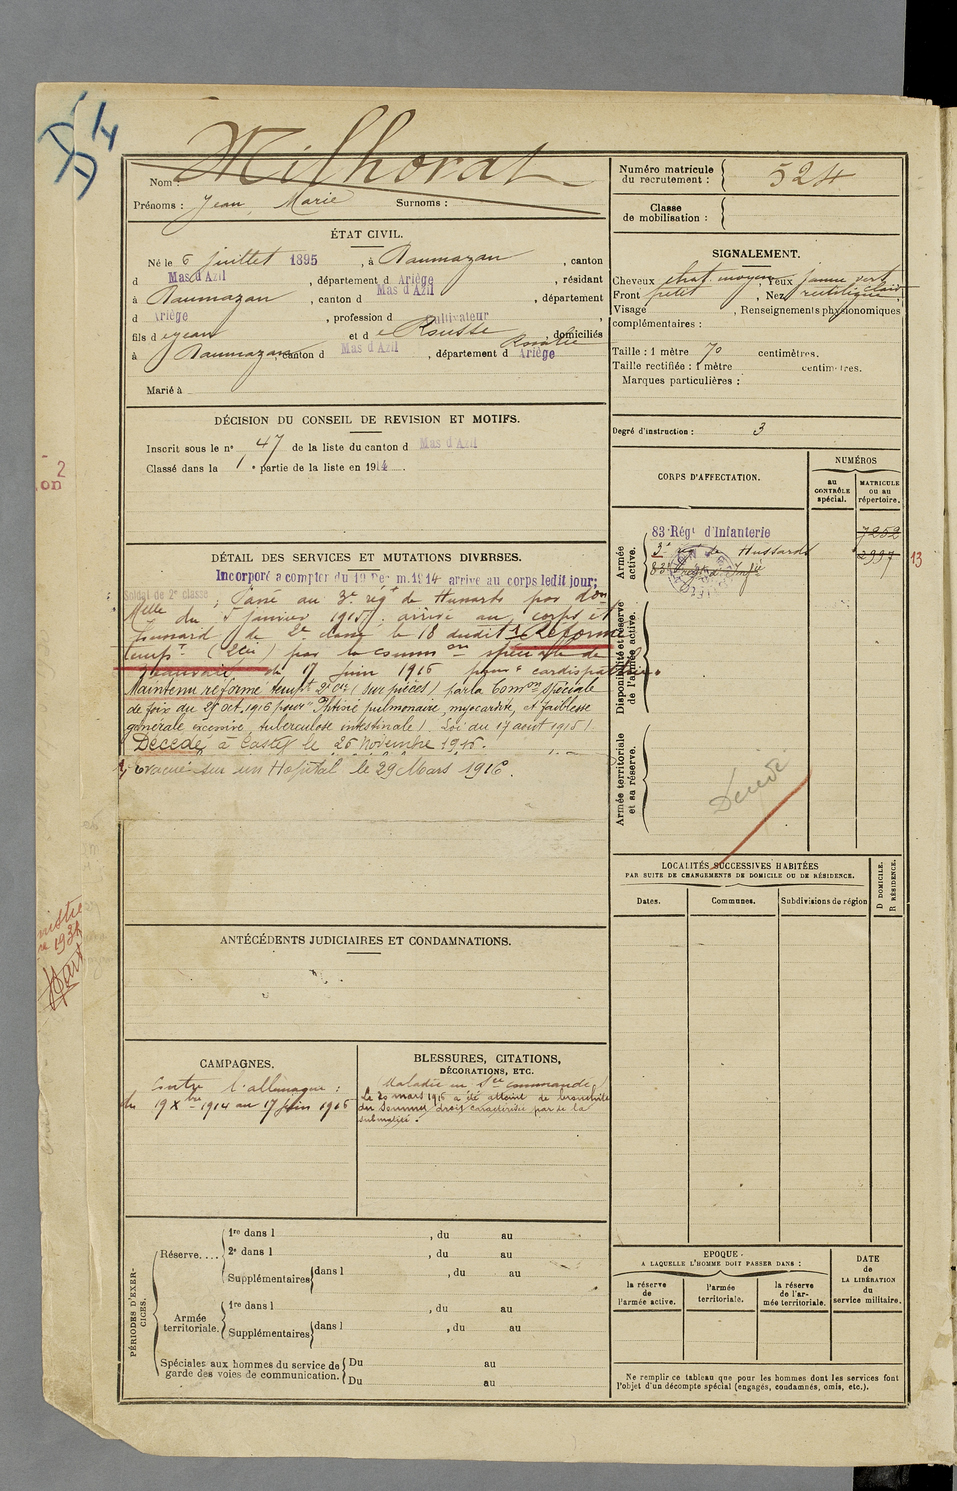 Milhorat
Nom :
Prénoms : Jean Marie Surnoms :
ÉTAT CIVIL.
Né le 6 juillet 1895, à Daumazan, canton
d Mas d'Azil, département d Ariège, résidant
à Daumazan, canton d Mas d'Azil, département
d Ariège, profession d cultivateur,
fils d e Jean et d e Rousse Rosalie, domiciliés
à Daumazan, canton d Mas d'Azil, département d Ariège
Marié à
DÉCISION DU CONSEIL DE REVISION ET MOTIFS.
Inscrit sous le n° 47 de la liste du canton d Mas d'Azil
Classé dans la 1e partie de la liste en 1914.
DÉTAIL DES SERVICES ET MUTATIONS DIVERSES.
Incorporé a compter du 19 Décem. 1914 arrive au corps ledit jour;
Soldat de 2e classe
Passé au 3e régt de Hussards par don
Melle du 5 janvier 1915; arrivé au corps et
hussard de 2e classe le 18 dudit. Réformé
tempre (2cie) par la common spéciale de
le 17 juin 1916 pour cardiopathie.
Maintenu réformé tempt 2e cie (sur pièces) par la Comon spéciale
de foix du 27 oct. 1916 pour "Phtisie pulmonaire, myocardite, et faiblesse
générale excessive, tuberculose intestinale". Loi du 17 août 1915).
Décédé à Castex le 26 Novembre 1916.
Evacué sur un Hopital le 29 Mars 1916.
ANTÉCÉDENTS JUDICIAIRES ET CONDAMNATIONS.
CAMPAGNES.
Contre l'allemagne :
du 19 Xbre 1914 au 17 juin 1916
BLESSURES, CITATIONS,
DÉCORATIONS, ETC.
Maladie en Sce commandé.
Le 20 mars 1916 a été atteint de bronchite
du sommet droit caractérisée par de la
submatité.
PÉRIODES D'EXERCICES.
Réserve....
1re dans l , du au
2e dans l , du au
Supplémentaires dans l , du au
Armée territoriale.
1re dans l , du au
Supplémentaires dans l , du au
Spéciales aux hommes du service de garde des voies de communication.
Du au
Du au
Numéro matricule
du recrutement : 524
Classe
de mobilisation :
SIGNALEMENT.
Cheveux chat. moyen, Yeux jaune vert clair
Front petit, Nez rectiligne,
Visage , Renseignements physionomiques
complémentaires :
Taille : 1 mètre 70 centimètres.
Taille rectifiée : 1 mètre centimètres.
Marques particulières :
Degré d'instruction : 3
CORPS D'AFFECTATION.
NUMÉROS
au
CONTRÔLE
spécial.
MATRICULE
ou au
répertoire.
Armée
active.
83e Régt d'Infanterie 7252
3e régt de Hussards 2997 13
83e
Disponibilité et réserve
de l'armée active.
Armée territoriale
et sa réserve.
Décédé
LOCALITÉS SUCCESSIVES HABITÉES
PAR SUITE DE CHANGEMENTS DE DOMICILE OU DE RÉSIDENCE.
Dates.
Communes.
Subdivisions de région
D DOMICILE.
R RÉSIDENCE.
EPOQUE
A LAQUELLE L'HOMME DOIT PASSER DANS :
la réserve
de
l'armée active.
l'armée
territoriale.
la réserve
de l'ar-
mée territoriale.
DATE
de
LA LIBÉRATION
du
service militaire.
Ne remplir ce tableau que pour les hommes dont les services font
l'objet d'un décompte spécial (engagés, condamnés, omis, etc.).